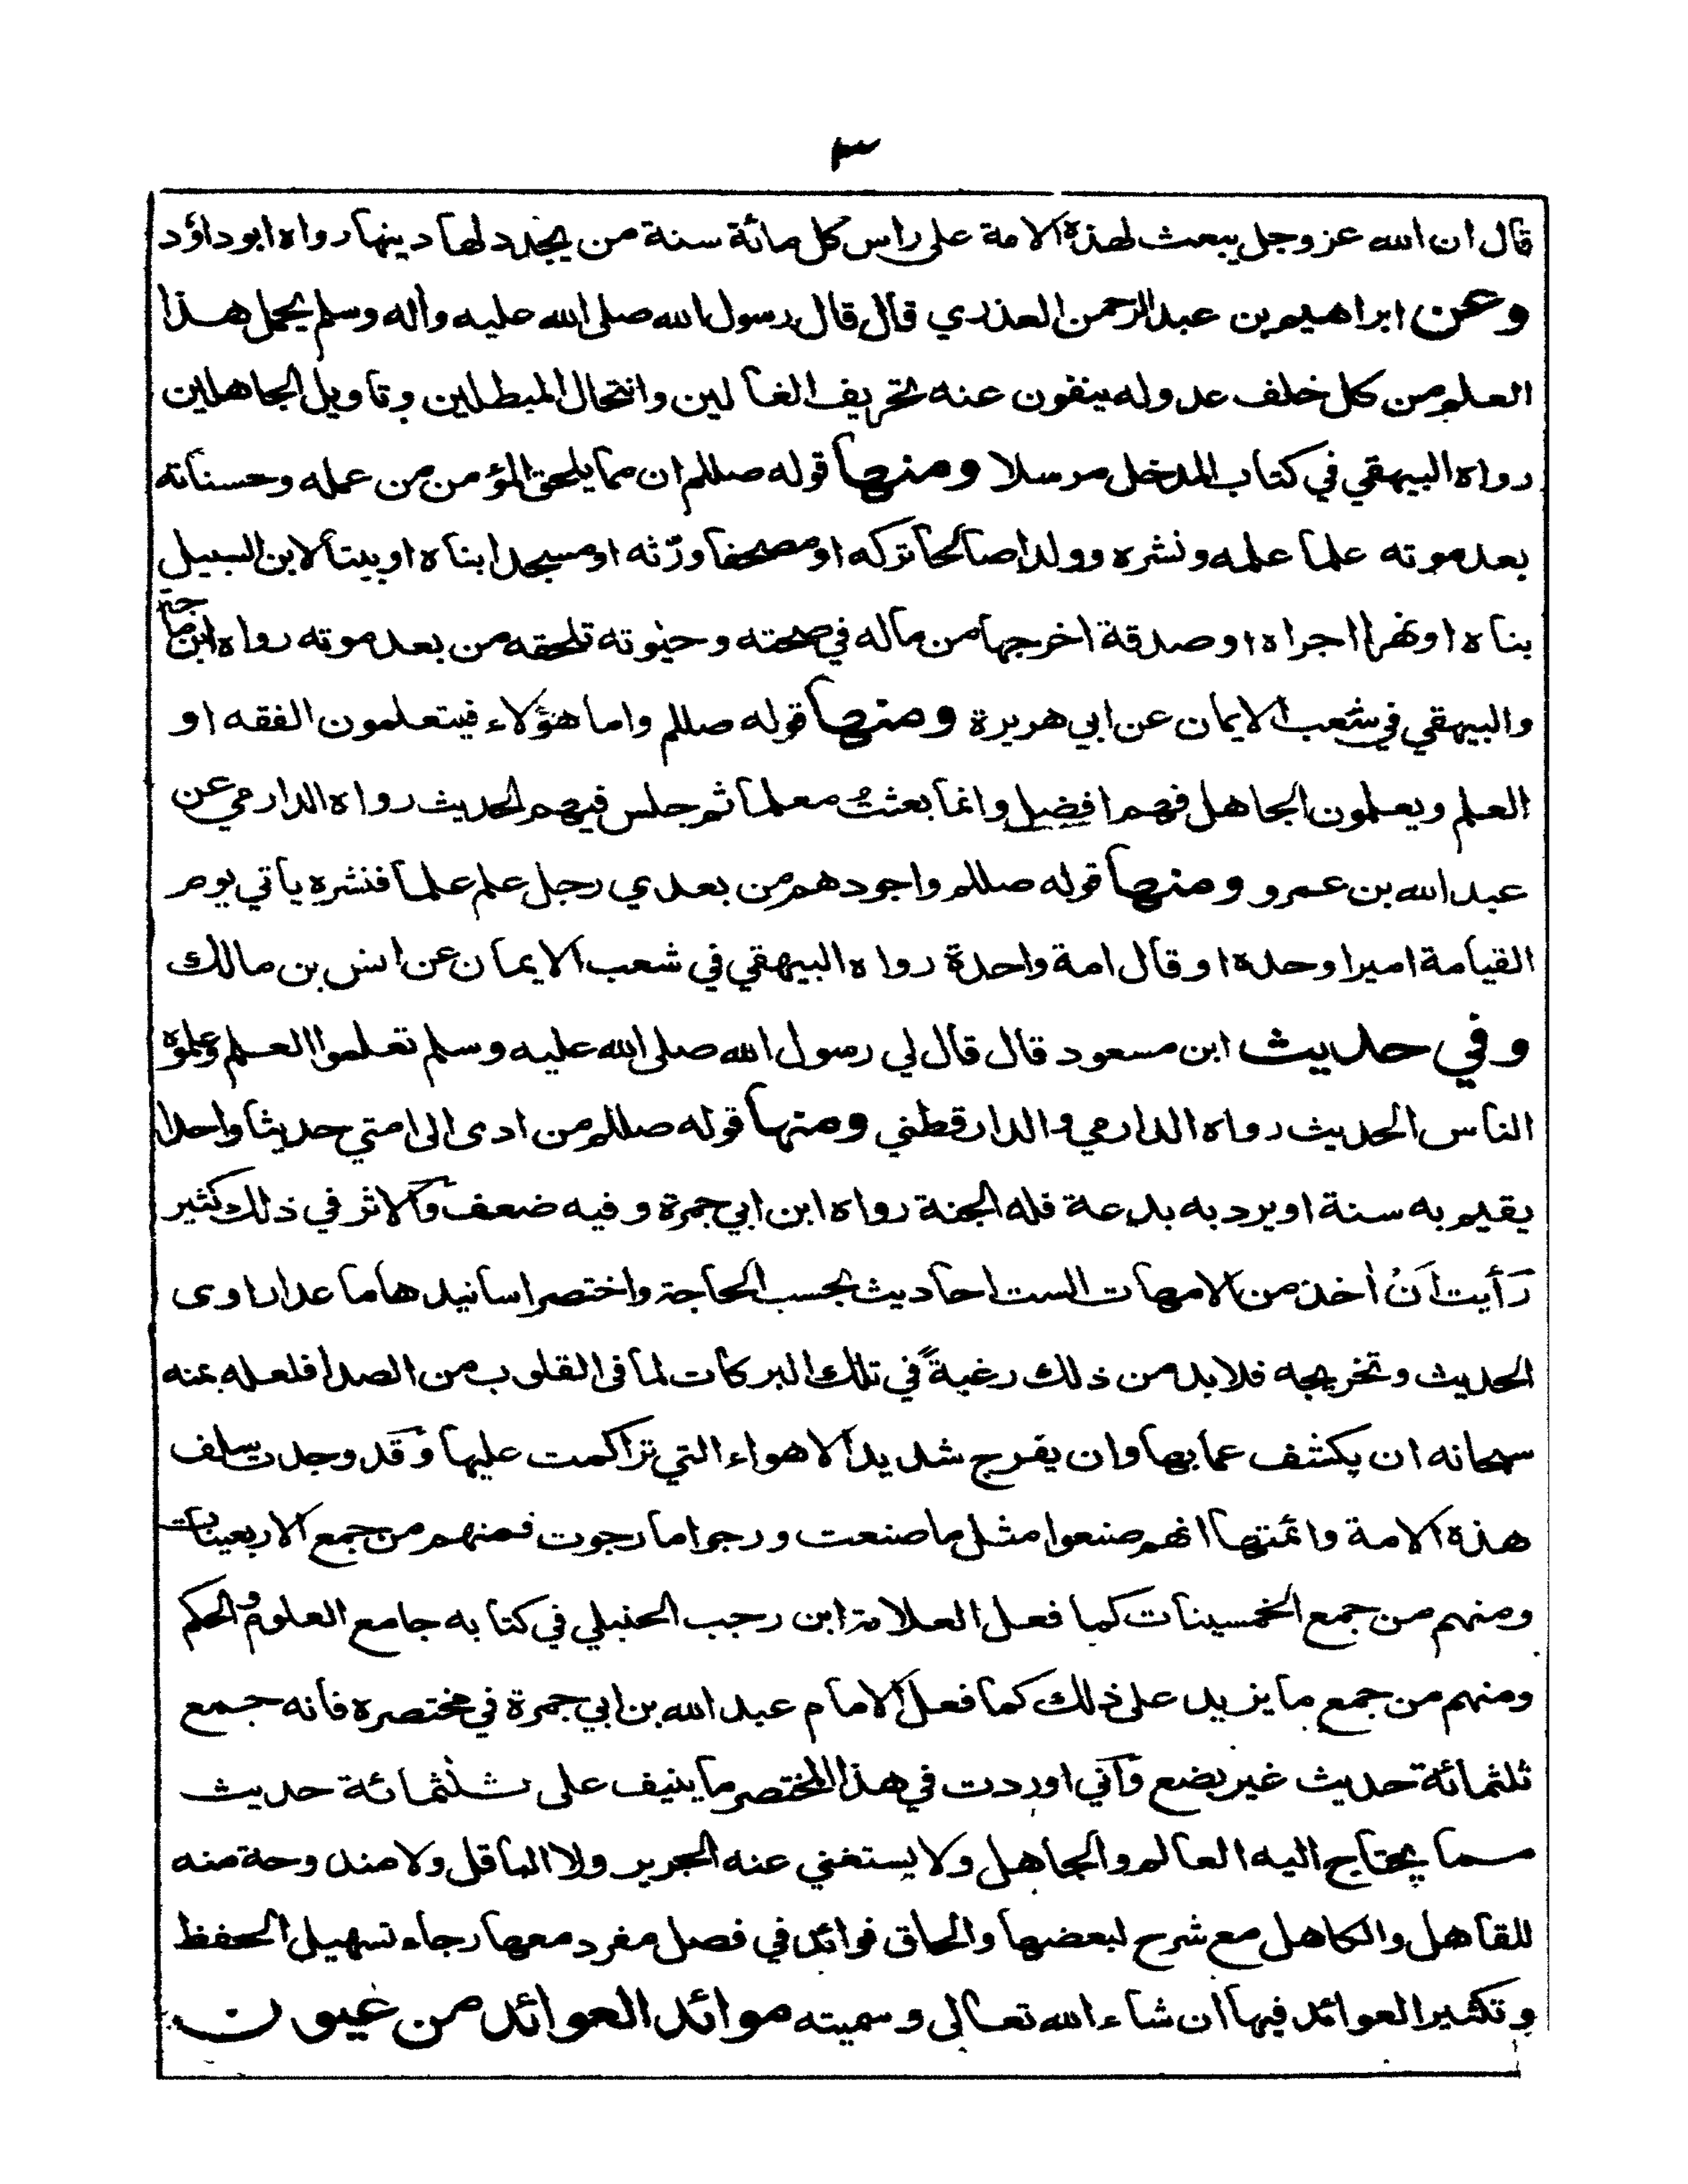 ٣
قال ان الله عز وجل يبعث لهذة الامة على راس كل مائة سنة من يجدد لها دينها رواه ابو داؤد
وعن ابراهيم بن عبد الرحمن العذري قال قال رسول الله صلى الله عليه واله وسلم يحمل هذا
العلم من كل خلف عدوله ينفون عنه تحريف الغالين وانتحال المبطلين وتاويل الجاهلين
رواه البيهقي في كتاب المدخل مرسلا ومنها قوله صللم ان مما يلحق المؤمن من عمله وحسناته
بعد موته علما علمه ونشره وولدا صالحا تركه او مصحفا ورّثه او مسجدا بناه او بيتا لابن السبيل
بناه او نهرا اجراه او صدقة اخرجها من ماله في صحته وحيوته تلحقه من بعد موته رواه ابن ماجة
والبيهقي في شعب الايمان عن ابي هريرة ومنها قوله صللم واما هؤلاء فيتعلمون الفقه او
العلم ويعلمون الجاهل فهم افضل وانما بعثتُ معلما ثم جلس فيهم الحديث رواه الدارمي عن
عبد الله بن عمرو ومنها قوله صللم واجودهم من بعدي رجل علم علما فنشره ياتي يوم
القيامة اميرا وحده او قال امة واحدة رواه البيهقي في شعب الايمان عن انس بن مالك
وفي حديث ابن مسعود قال قال لي رسول الله صلى الله عليه وسلم تعلموا العلم وعلموه
الناس الحديث رواه الدارمي والدارقطني ومنها قوله صللم من ادى الى امتي حديثا واحدا
يقيم به سنة او يرد به بدعة فله الجنة رواه ابن ابي جمرة وفيه ضعف وآلاثر في ذلك كثير
رَأيت اَنْ أخذ من الامهات الست احاديث بحسب الحاجة واختصر اسانيدها ما عدا راوى
الحديث وتخريجه فلابد من ذلك رغبةً في تلك البركات لما فى القلوب من الصدا فلعله بمنه
سبحانه ان يكشف عما بها وان يفرج شديد الاهواء التي تراكمت عليها وَقد وجدت سلف
هذة الامة وائمتها انهم صنعوا مثل ما صنعت ورجوا ما رجوت فمنهم من جمع الاربعينات
ومنهم من جمع الخمسينات كما فعل العلامة ابن رجب الحنبلي في كتابه جامع العلوم والحكم
ومنهم من جمع ما يزيد على ذلك كما فعل الامام عبد الله بن ابي جمرة في مختصره فانه جمع
ثلثمائة حديث غير بضع وَآني اوردت في هذا المختصر ما ينيف على ثلثمائة حديث
مما يحتاج اليه العالم والجاهل ولا يستغني عنه الجرير ولا الباقل ولا مندوحة منه
للقاهل والكاهل مع شرح لبعضها والحاق فوائد في فصل مفرد معها رجاء تسهيل الحفظ
وتكثير العوائد فيها ان شاء الله تعالى وسميته موائد العوائد من عيون